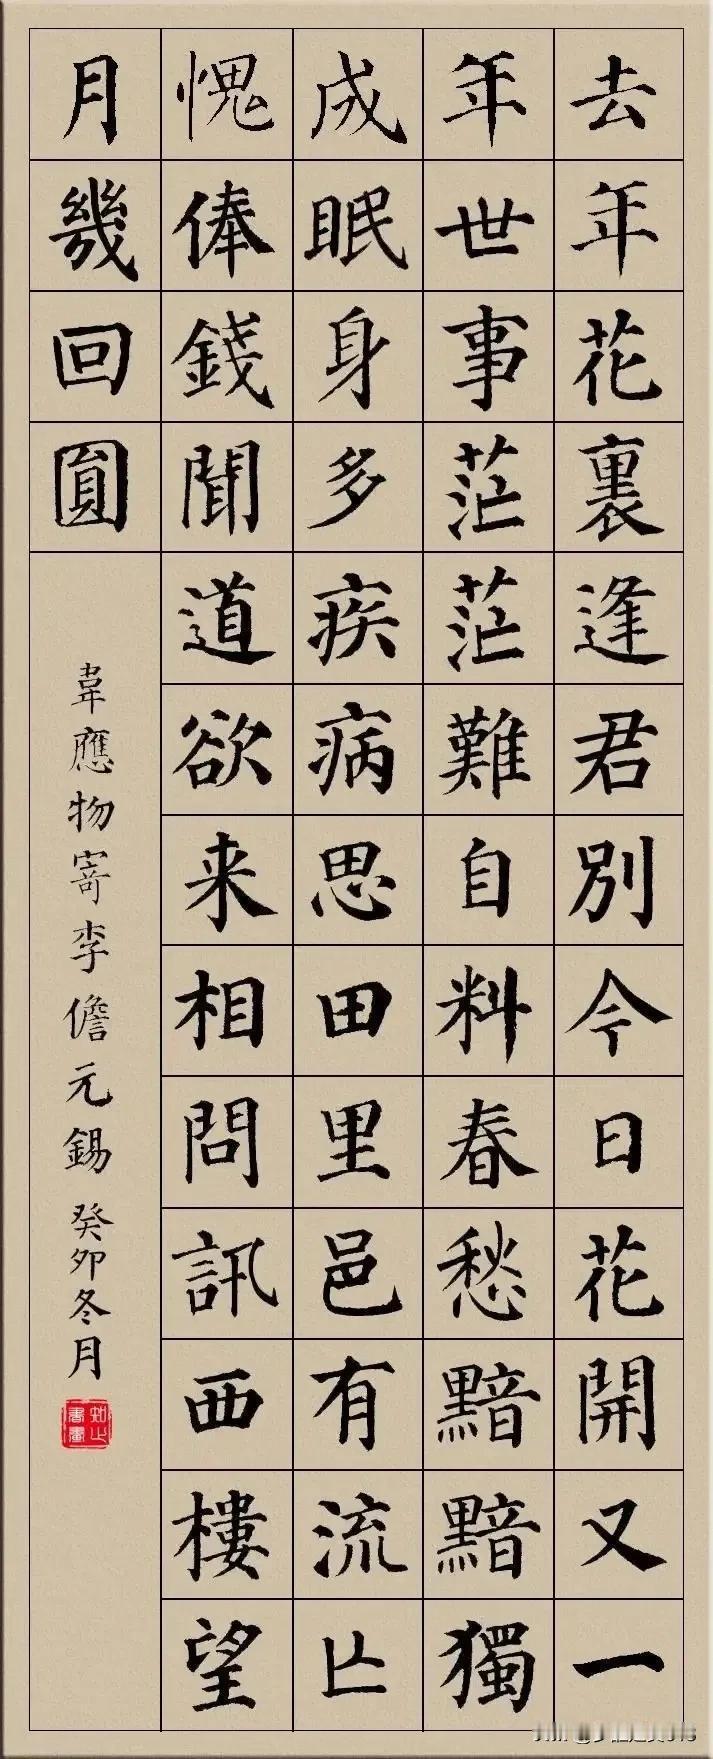 去年花裏逢君別今日花開又一
年世事茫茫難自料春愁黯黯獨
成眠身多疾病思田里邑有流亾
愧俸錢聞道欲来相問訊西樓望
月幾回圓
韋應物寄李儋元錫 癸卯冬月
知止書畫